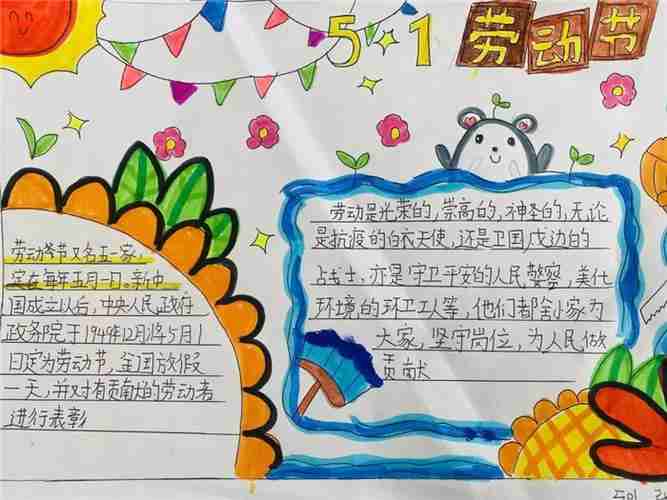 5·1 劳动节
劳动爷节又名五一家,
实在每年五月一日。新中
国成立以后,中央人民政府
政务院于1949年12月将5月1
日定为劳动节,全国放假
一天,并对有贡献的劳动者
进行表彰
劳动是光荣的,崇高的,神圣的,无论
是抗疫的白衣天使,还是卫国戍边的
战士,亦是守卫平安的人民警察,美化
环境的环卫工人等,他们都舍小家为
大家,坚守岗位,为人民做
贡献